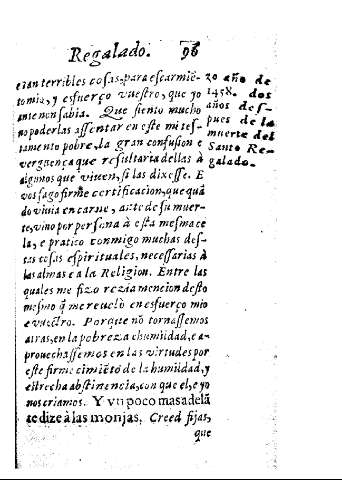 Regalado. 98
eran terribles cosas, para escarmiẽ-
to mio, y esfuerço vuestro, que yo
ante non sabia. Que siento mucho
no poderlas assentar en este mi tes-
tamento pobre, la gran confusion e
verguença que resultaria dellas à
algunos que viven, si las dixesse. E
vos fago firme certificacion, que quã
do vivia en carne, ante de su muer-
te, vino por persona à esta mesma ce
la, e pratico conmigo muchas des-
tas cosas espirituales, necessarias à
las almas e a la Religion. Entre las
quales me fizo rezia mencion desto
mesmo q̃ me revelò en esfuerço mio
e vuestro. Porque nõ tornassemos
atras, en la pobreza e humildad, e a-
provechassemos en las virtudes por
este firme cimiẽto de la humildad, y
estrecha abstinencia, con que el, e yo
nos criamos. Y un poco mas adelã
te dize à las monjas. Creed fijas,
que
20 año de
1458. dos
años des-
pues de la
muerte del
Santo Re-
galado.